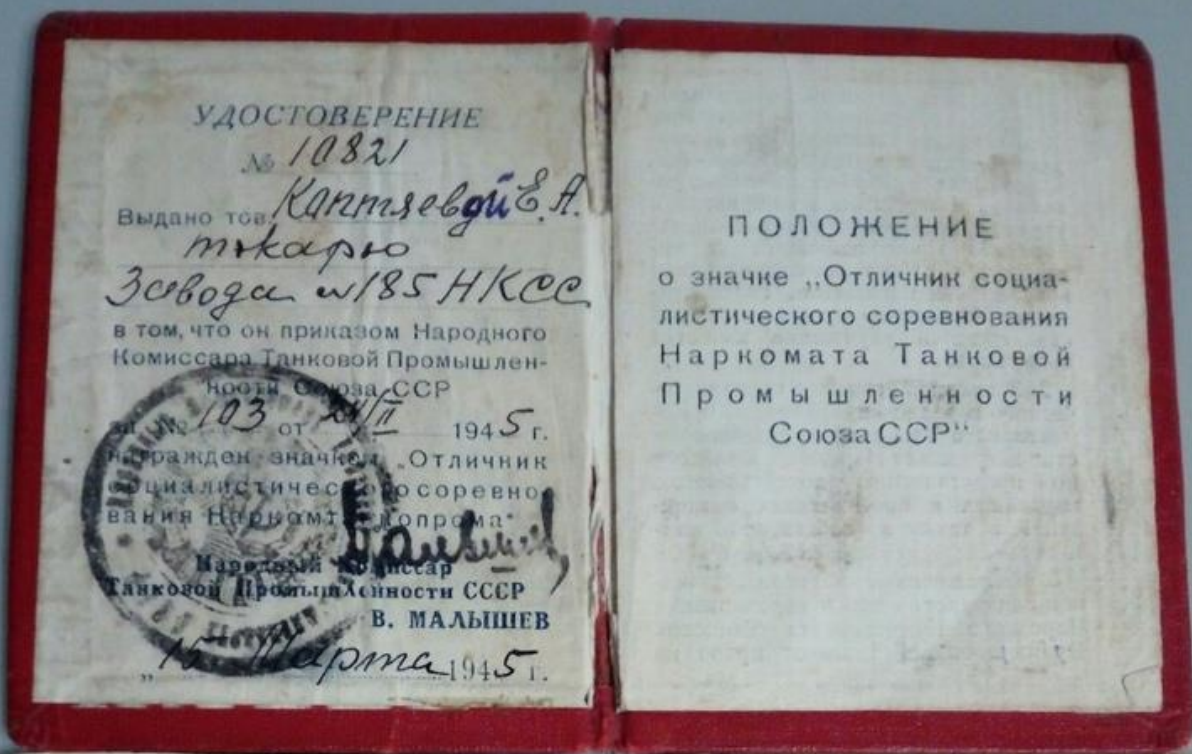 УДОСТОВЕРЕНИЕ
№ 10821
Выдано тов. Каптяевой Е.А.
токарю
Завода №185 НКСС
в том, что он приказом Народного
Комиссара Танковой Промышлен-
ности Союза ССР
за № 103 от 1945 г.
награжден значком „Отличник
социалистического соревно-
вания Наркомтанкопрома"
Народный Комиссар
Танковой Промышленности СССР
В. МАЛЫШЕВ
„15 Марта 1945 г.
ПОЛОЖЕНИЕ
о значке „Отличник социа-
листического соревнования
Наркомата Танковой
Промышленности
Союза ССР"